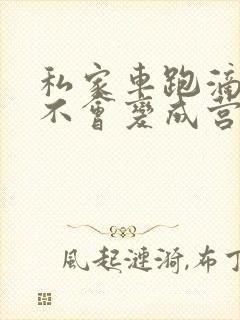 私家車跑滴
不會變成營
風起漣漪,布丁